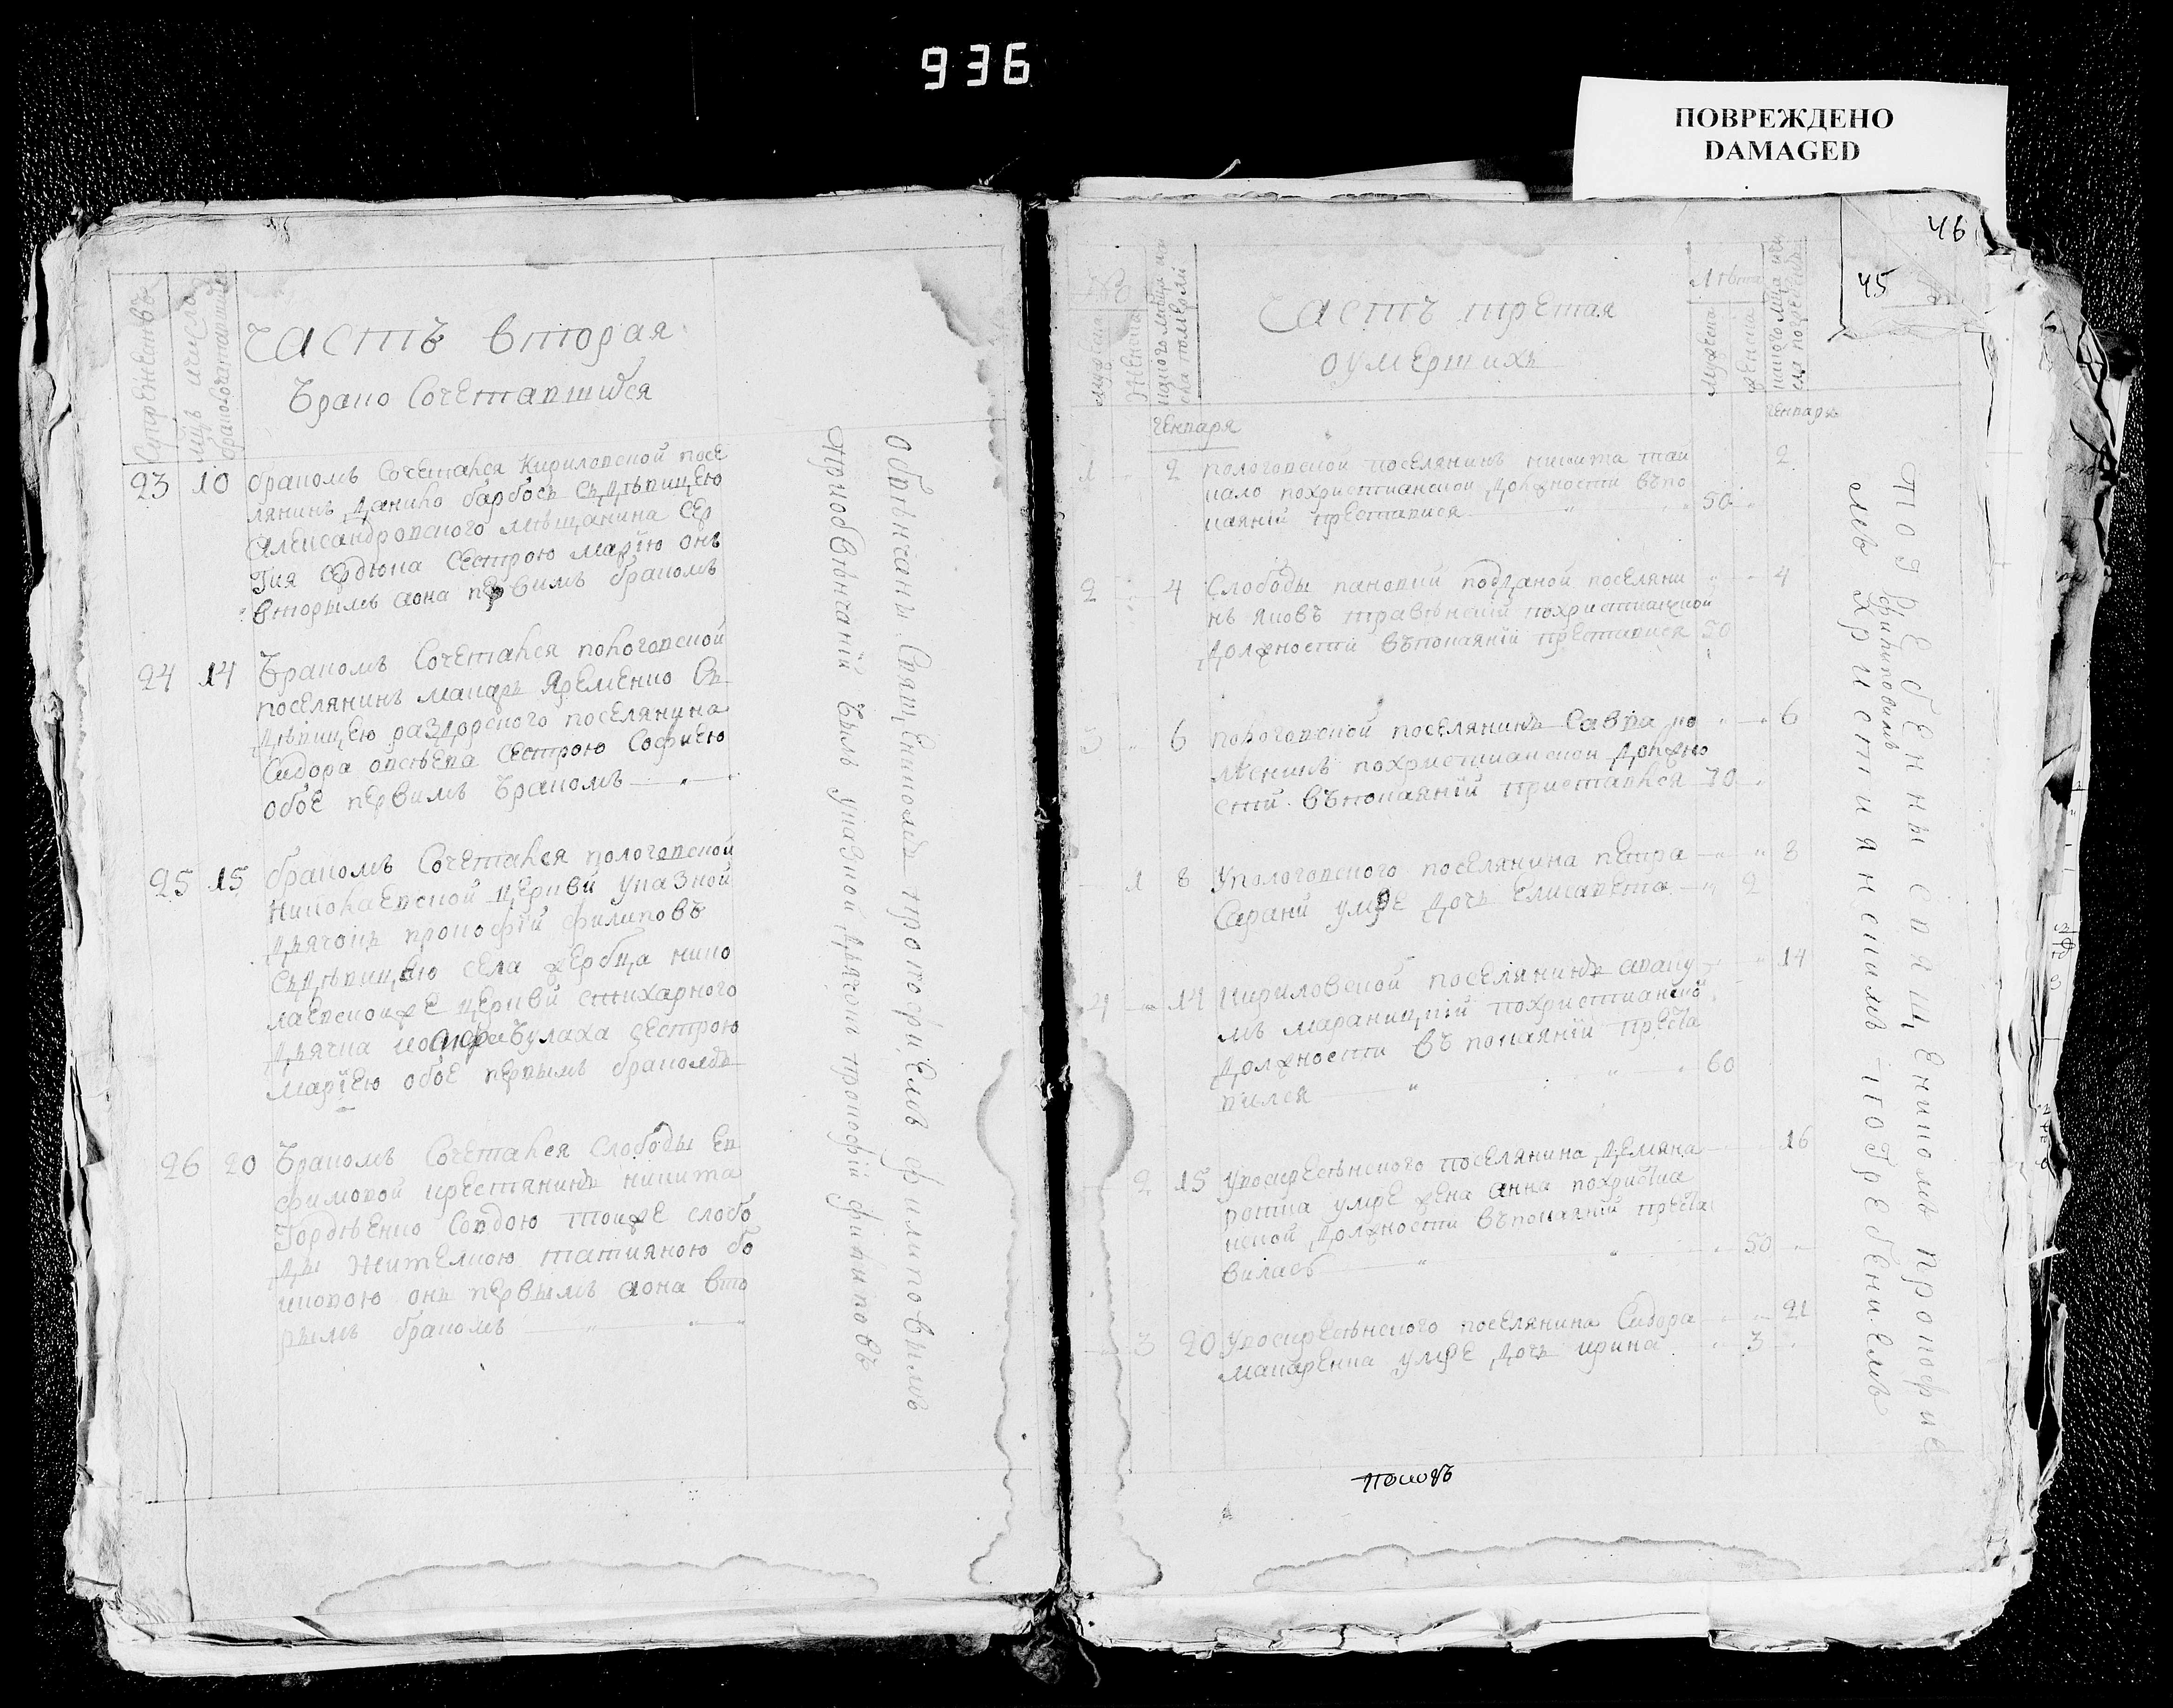 936
ПОВРЕЖДЕНО
DAMAGED
46
45
Часть вторая
Брако Сочетавшийся
23 10 бракомъ Сочетался Кириловской посе
лянинъ Данило барбосъ съдѣвицею
Александровского мѣщанина Сер
гия Сердюка Сестрою Мариею онъ
вторымъ аона первимъ бракомъ
24 14 Бракомъ Сочетался пологовской
поселянинъ макаръ Яременко Съ
дѣвицею раздорского поселянина
Сидора Сестрою Софиею
обое первимъ бракомъ
25 15 бракомъ Сочетался пологовской
николаевской церкви указной
Дячокъ прокофїй филиповъ
съдѣвицею села жеребца нико
лаевскоиже церкви стихарного
Дячка Булаха Сестрою
Марїею обое первымъ бракомъ
26 20 Бракомъ Сочетался Слободы Ев
фимовой крестянинъ никита
Гордѣенко Совдою тоиже слобо
ды жителкою татияною бо
иковою онъ первымъ аона вто
рымъ бракомъ
Обвѣнчаны Священникомъ прокофиемъ филиповымъ
приобвѣнчанїй былъ указной Дячокъ прокофїй филиповъ
Часть третая
оумершихъ
Лѣта
мужеска
женска
Генваря
Генваря
1 2 пологовской поселянинъ никита шан
кало похристианской Должности въпо
каянїй преставися 50 2
2 4 Слободы пановки подданой поселяни
нъ яковъ травѣнскїй похристианской
Должности въпокаянїй преставися 50 4
3 6 пологовской поселянинъ Савва ко
похристианской Должно
стїй въпокаянїй приставился 70 6
1 8 Упологовского поселянина петра
Сарани умре Дочь Елисавета 2 8
4 14 Кириловской поселянинъ
мъ похристианской
Должности въ покаянїй преста
вился 60 14
2 15 Увоскресѣнского поселянина Демяна
умре жена анна похристиа
нской Должности въпокаянїй преста
вилась 50 16
3 20 Увоскресѣнского поселянина Сидора
макаренка умре Дочь ирина 3 21
погребенны священникомъ прокофие
мъ филиповимъ
християнскимъ погребениемъ
поповъ